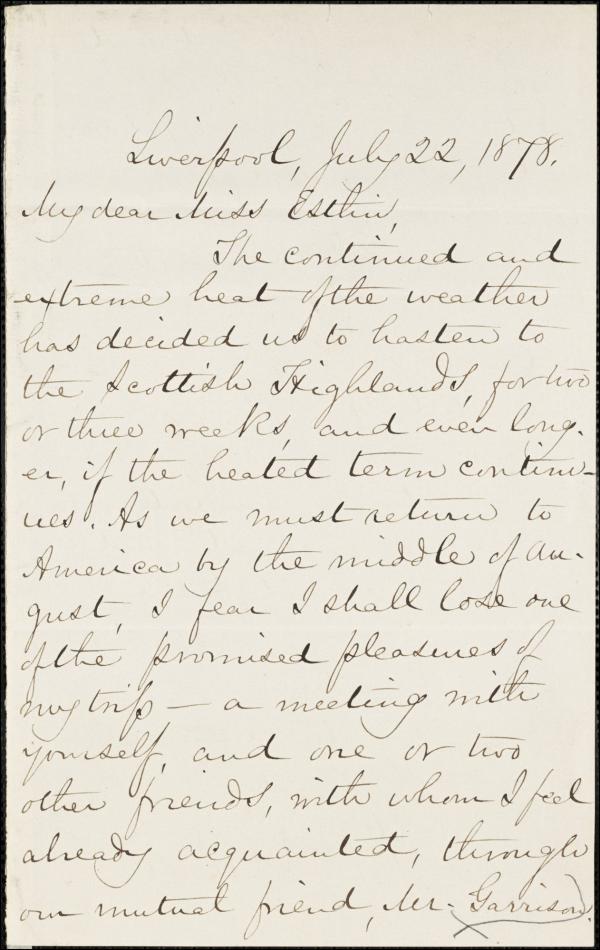 Liverpool, July 22, 1878.
My dear Miss Estlin,
The continued and
extreme heat of the weather
has decided us to hasten to
the Scottish Highlands, for two
or three weeks, and even long-
er, if the heated term contin-
ues. As we must return to
America by the middle of Au-
gust, I fear I shall lose one
of the promised pleasures of
my trip — a meeting with
yourself, and one or two
other friends, with whom I feel
already acquainted, through
our mutual friend, Mr. Garrison.